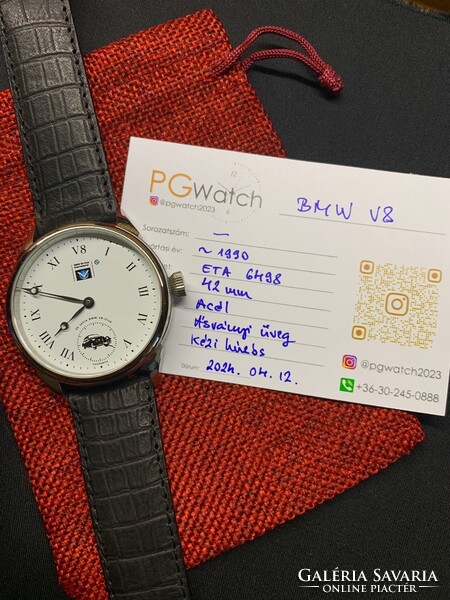 PGWatch
@pgwatch2023
BMW V8
Sorozatszám: —
ártási év: ~ 1990
ETA 6498
42 mm
Acél
Ásványi üveg
Kézi húzós
Dátum: 2024. 04. 12.
@pgwatch2023
+36-30-245-0888
V8
I
II
III
IIII
V
VII
VIII
X
XI
GALÉRIA SAVARIA
ONLINE PIACTÉR